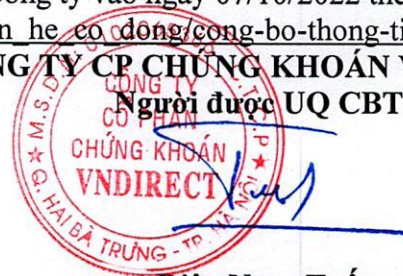 công ty vào ngày 07/10/2022 the
n_he_co_dong/cong-bo-thong-ti
NG TY CP CHỨNG KHOÁN V
Người được UQ CBT
CÔNG TY
CỔ PHẦN
CHỨNG KHOÁN
VNDIRECT
Q. HAI BÀ TRƯNG - TP. HÀ NỘI